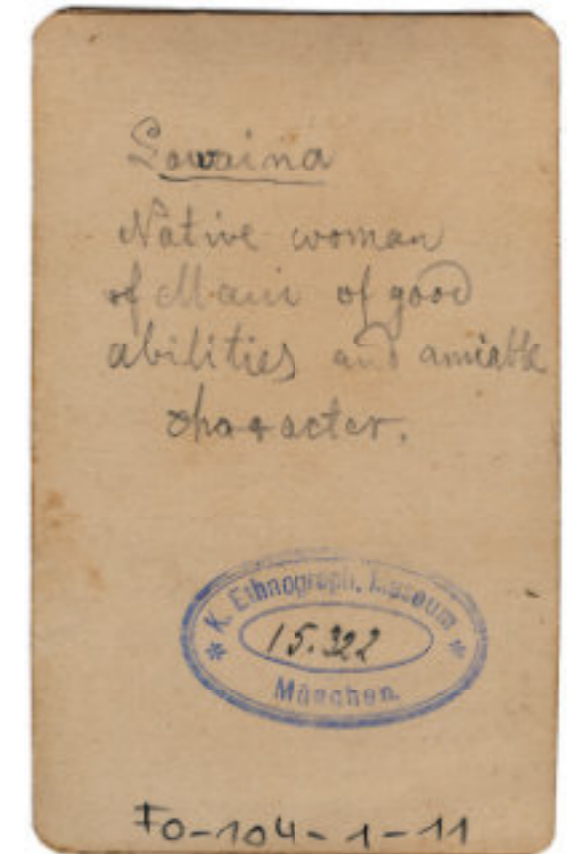 Lowaina
Native woman
of Maui of good
abilities and amiable
character.
* K. Ethnograph. Museum *
15.322
München.
FO-104-1-11